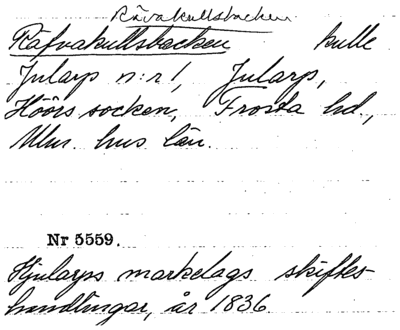 Rävakullsbacken
Räfvakullsbacken kulle
Jularp n:r 1, Jularp,
Höörs socken, Frosta hd.,
Mlm. hus län.
Nr 5559.
Hjularps markelags skiftes-
handlingar, år 1836.